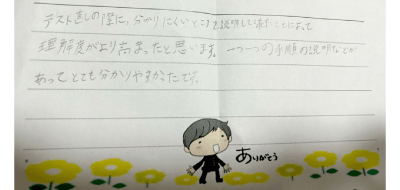 テスト直しの際に、分かりにくいところを説明して頂いたことによって
理解度がより高まったと思います。一つ一つの手順の説明などが
あってとても分かりやすかったです。
ありがとう